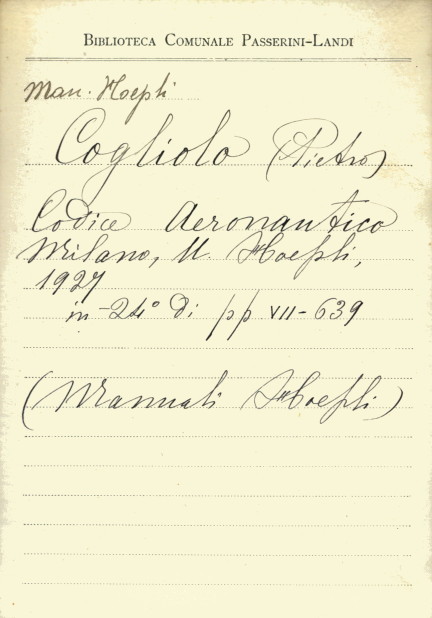 BIBLIOTECA COMUNALE PASSERINI-LANDI
Man. Hoepli
Cogliolo (Pietro)
Codice Aeronautico
Milano, U. Hoepli,
1927
in-24° di pp VII-639
(Manuali Hoepli)